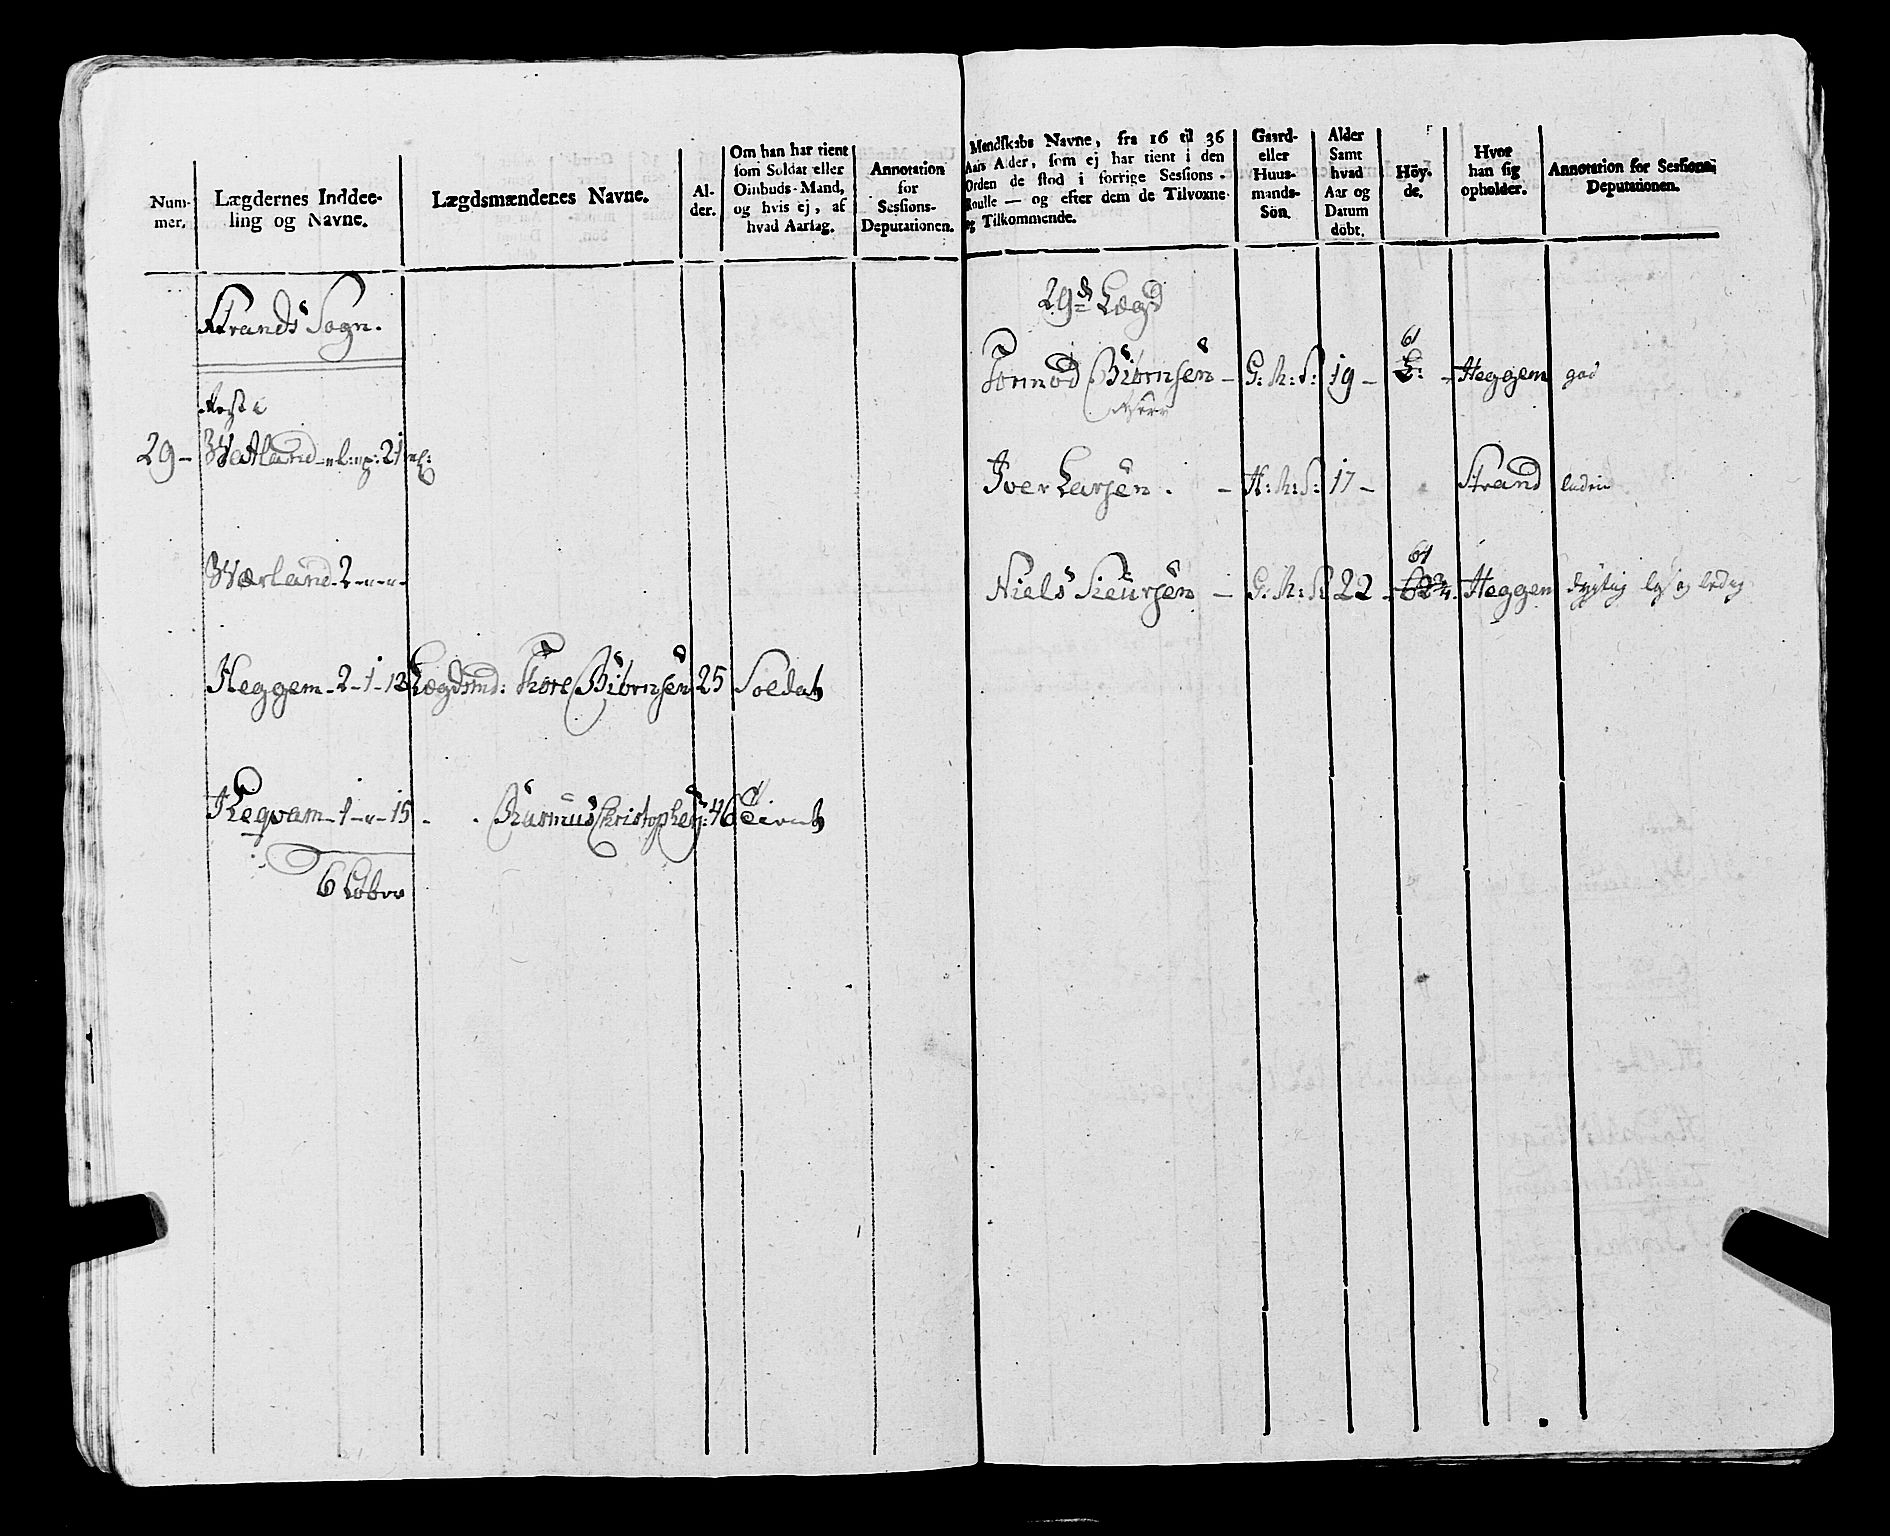 Num-
mer.
Lægdernes Inddee-
ling og Navne.
Lægdsmændenes Navne.
Al-
der.
Om han har tient
som Soldat eller
Ombuds-Mand,
og hvis ej, af
hvad Aarsag.
Annotation
for
Sessions-
Deputationen.
Strands Sogn.
29 -
Watland
Værland - 2 - " - "
Heggem - 2 - 1 - 12 Lægdsmd: Thore Biörnsen 25 Soldat
Regvam - 1 - " - 15 - Rasmus Christophers: 46
6 Löber
Mandskabs Navne, fra 16 til 36
Aars Alder, som ej har tient i den
Orden de stod i forrige Sessions-
Roulle — og efter dem de Tilvoxne
og Tilkommende.
Gaard-
eller
Huus-
mands-
Sön.
Alder
Samt
hvad
Aar og
Datum
döbt.
Höy-
de.
Hvor
han sig
opholder.
Annotation for Sessions-
Deputationen.
29de Lægd
61
Tonnod Biörnsen - G: R: S: 19 - Heggem god
Iver Larsen. - H: R: S: 17 - Strand
61
Niels Sieursen - G: R: S: 22 - 62 3/4 Heggen dygtig